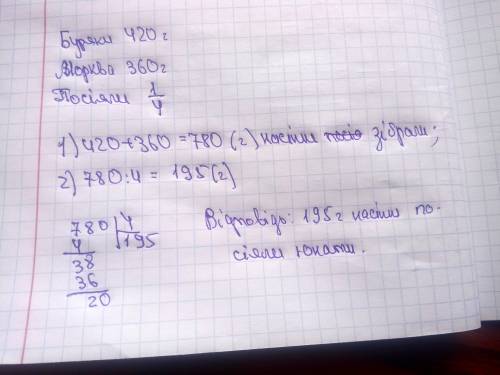 Буряки 420 г
Морква 360 г
Посіяли 1/4
1) 420+360=780 (г) насіння зібрали;
2) 780:4 = 195 (г)
780 4
4 195
38
36
20
Відповідь: 195 г насіння по-
сіяли юнати.